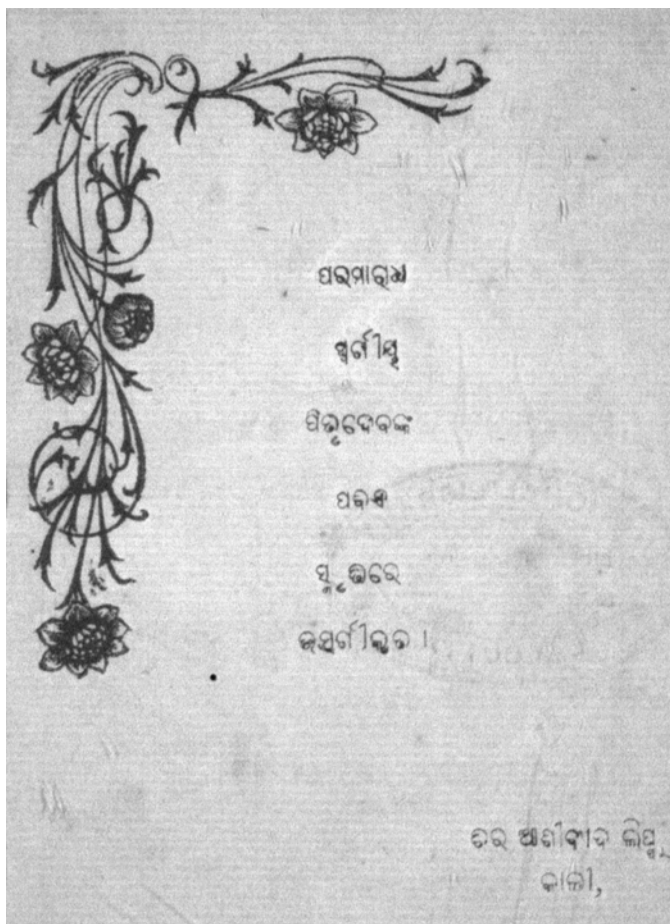 ପରମାରାଧ୍ୟ
ସ୍ୱର୍ଗୀୟ
ପିତୃଦେବଙ୍କ
ପବିତ୍ର
ସ୍ମୃତିରେ
ଉତ୍ସର୍ଗୀକୃତ ।
ଚିର ଆଶୀର୍ବାଦ ଲିପ୍ସୁ,
କାଳୀ,